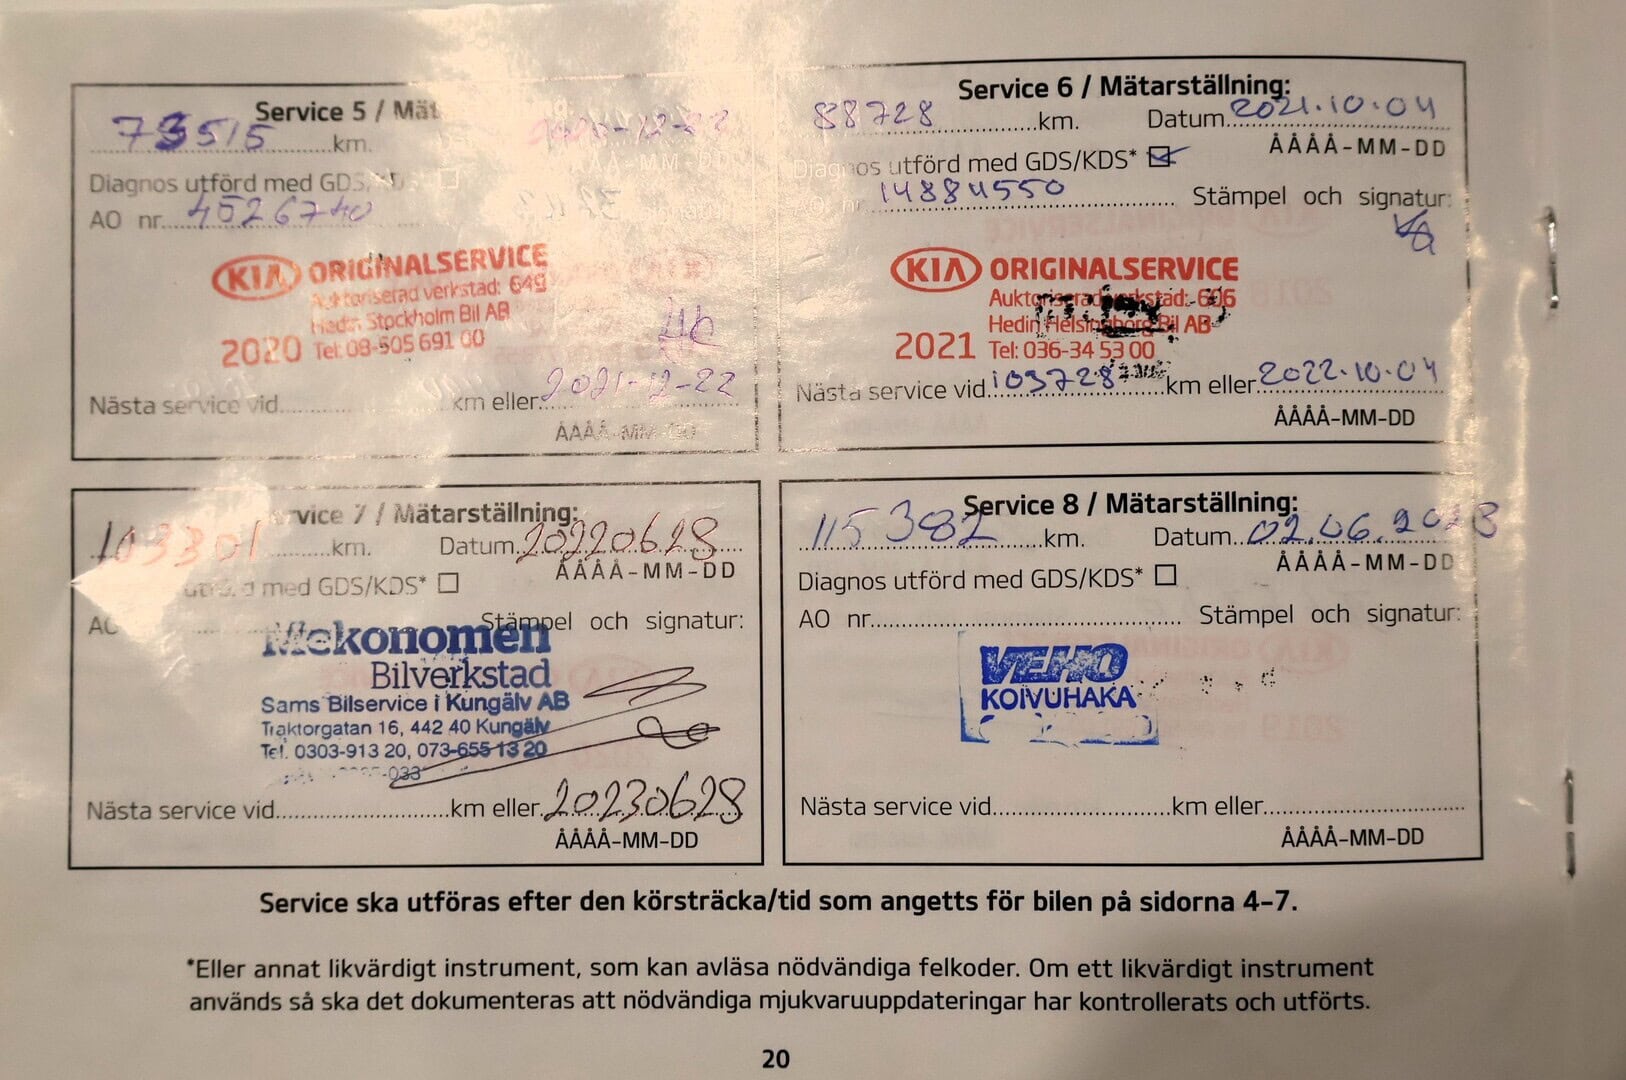 Service 5 / Mät
73515 km.
Diagnos utförd med GDS/
AO nr. 4526740
KIA ORIGINALSERVICE
Auktoriserad verkstad: 649
Hedin Stockholm Bil AB
2020 Tel: 08-505 691 00
Nästa service vid km eller 2021-12-22
ÅÅÅÅ-MM-DD
Service 6 / Mätarställning:
88728 km. Datum 2021.10.04
ÅÅÅÅ-MM-DD
Diagnos utförd med GDS/KDS*
14884550 Stämpel och signatur:
KIA ORIGINALSERVICE
Auktoriserad verkstad: 606
Hedin Helsingborg Bil AB
2021 Tel: 036-34 53 00
Nästa service vid 103728 km eller 2022.10.04
ÅÅÅÅ-MM-DD
Service 7 / Mätarställning:
103301 km. Datum 20220628
ÅÅÅÅ-MM-DD
utförd med GDS/KDS*
AO
Stämpel och signatur:
Mekonomen
Bilverkstad
Sams Bilservice i Kungälv AB
Traktorgatan 16, 442 40 Kungälv
Tel. 0303-913 20, 073-655 13 20
Nästa service vid km eller 20230628
ÅÅÅÅ-MM-DD
Service 8 / Mätarställning:
115382 km. Datum 02.06.2023
ÅÅÅÅ-MM-DD
Diagnos utförd med GDS/KDS*
AO nr. Stämpel och signatur:
VEHO
KOIVUHAKA
Nästa service vid km eller
ÅÅÅÅ-MM-DD
Service ska utföras efter den körsträcka/tid som angetts för bilen på sidorna 4-7.
*Eller annat likvärdigt instrument, som kan avläsa nödvändiga felkoder. Om ett likvärdigt instrument
används så ska det dokumenteras att nödvändiga mjukvaruuppdateringar har kontrollerats och utförts.
20